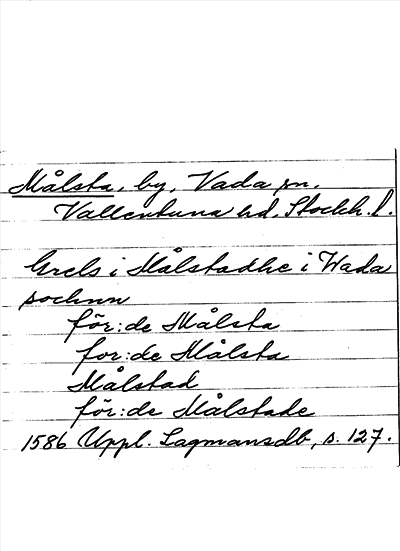 Målsta, by, Vada sn.
Vallentuna hd, Stockh. l.
Grels i Målstadhe i Wada
sochnn
för:de Målsta
for:de Målsta
Målstad
för:de Målstade
1586 Uppl. Lagmansdb, s. 127.